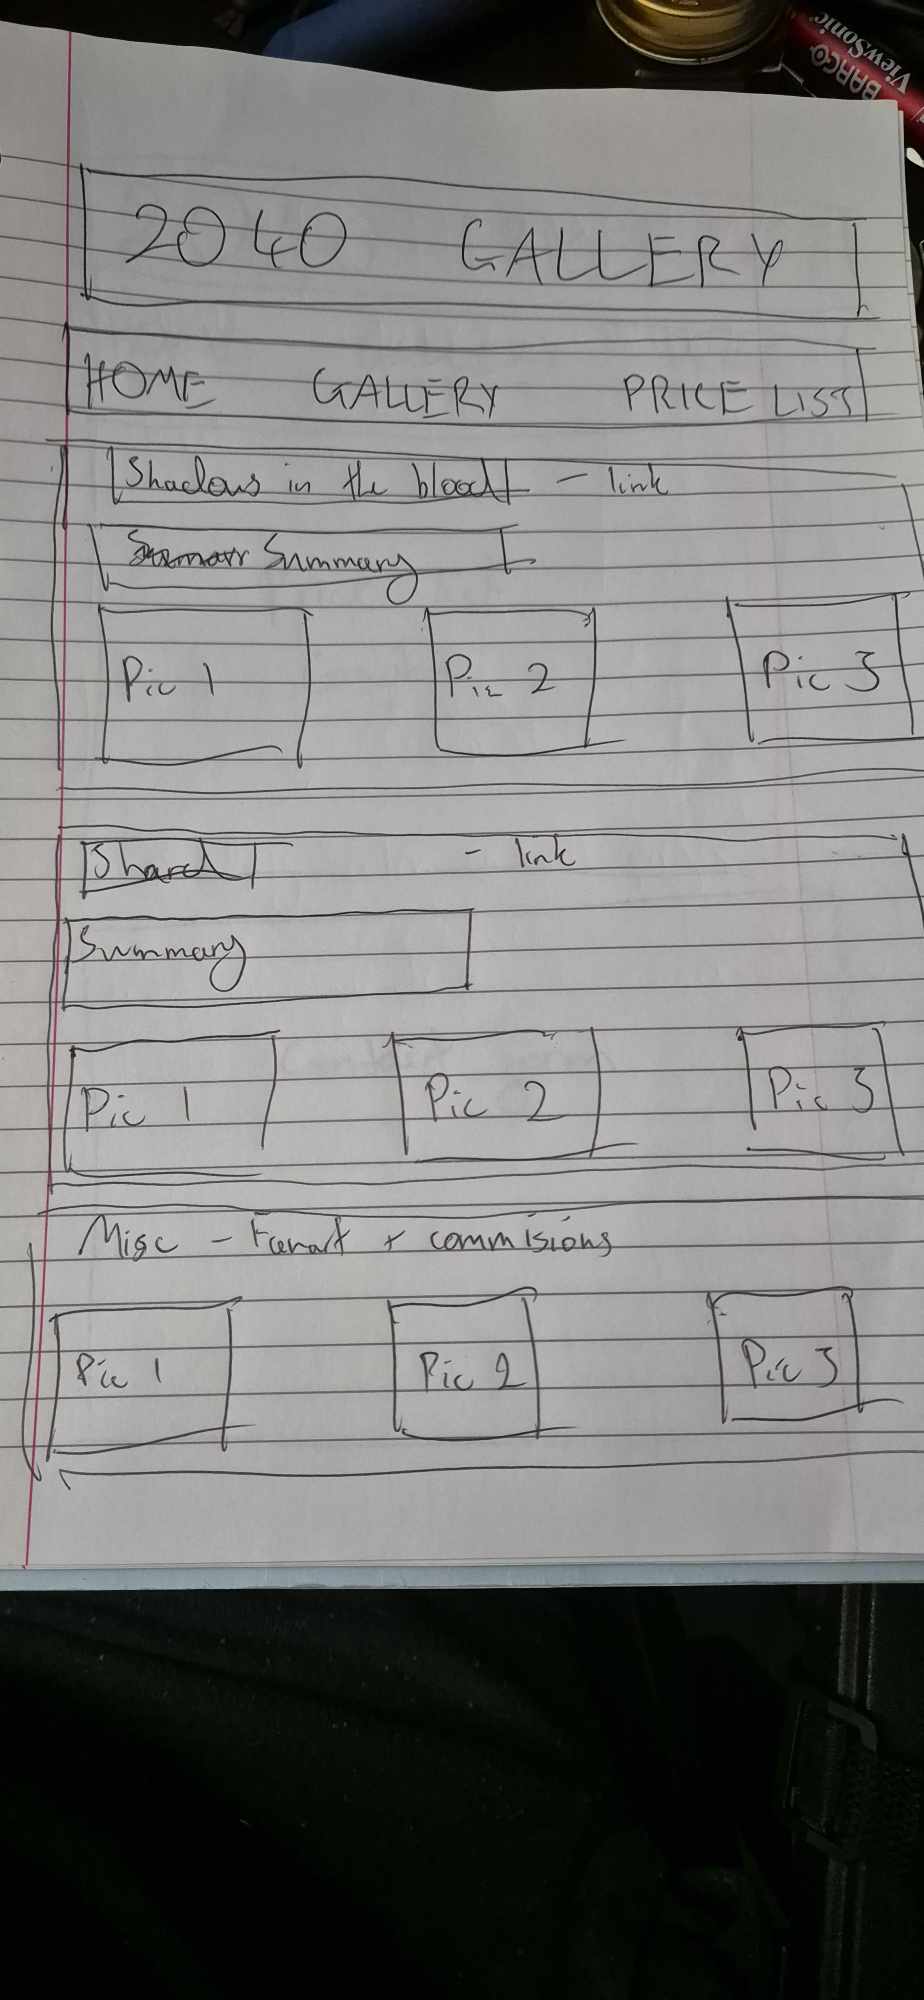 ViewSonic
BARCO
2040 GALLERY
HOME GALLERY PRICE LIST
Shadows in the blood - link
Summary
Pic 1 Pic 2 Pic 3
Shard - link
Summary
Pic 1 Pic 2 Pic 3
Misc - Fanart + commisions
Pic 1 Pic 2 Pic 3